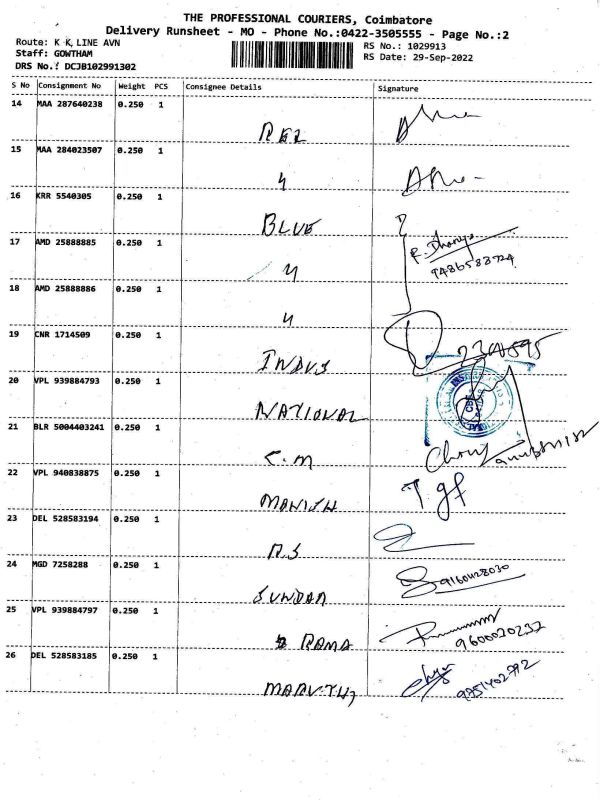 THE PROFESSIONAL COURIERS, Coimbatore
Delivery Runsheet - MO - Phone No.:0422-3505555 - Page No.:2
Route: K K, LINE AVN
Staff: GOWTHAM
DRS No.: DCJB102991302
RS No.: 1029913
RS Date: 29-Sep-2022
S No Consignment No Weight PCS Consignee Details Signature
14 MAA 287640238 0.250 1
15 MAA 284023507 0.250 1
16 KRR 5540305 0.250 1
BLUE
17 AMD 25888885 0.250 1
R. Dhanya
9486588724
18 AMD 25888886 0.250 1
19 CNR 1714509 0.250 1
INDUS
20 VPL 939884793 0.250 1
NATIONAL
21 BLR 5004403241 0.250 1
C.M
22 VPL 940838875 0.250 1
MANISH
23 DEL 528583194 0.250 1
R.S
24 MGD 7258288 0.250 1
SUNDAR
9160428030
25 VPL 939884797 0.250 1
RAMA
9600020232
26 DEL 528583185 0.250 1
9751402792